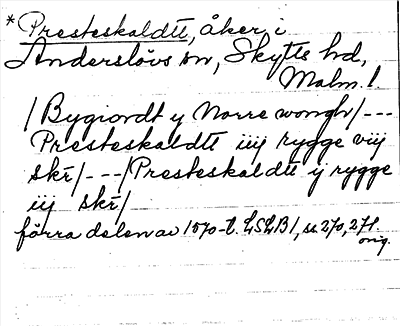 *Presteskaldtt, åker i
Anderslövs sn, Skytts hd,
Malm. l.
/Bygiordt y Norre wongh/---
Presteskaldtt iiij rygge viij
skr/---/Presteskaldtt ij rygge
iij skr/
förra delen av 1570-t. LSLB 1, ss 270, 271.
orig.